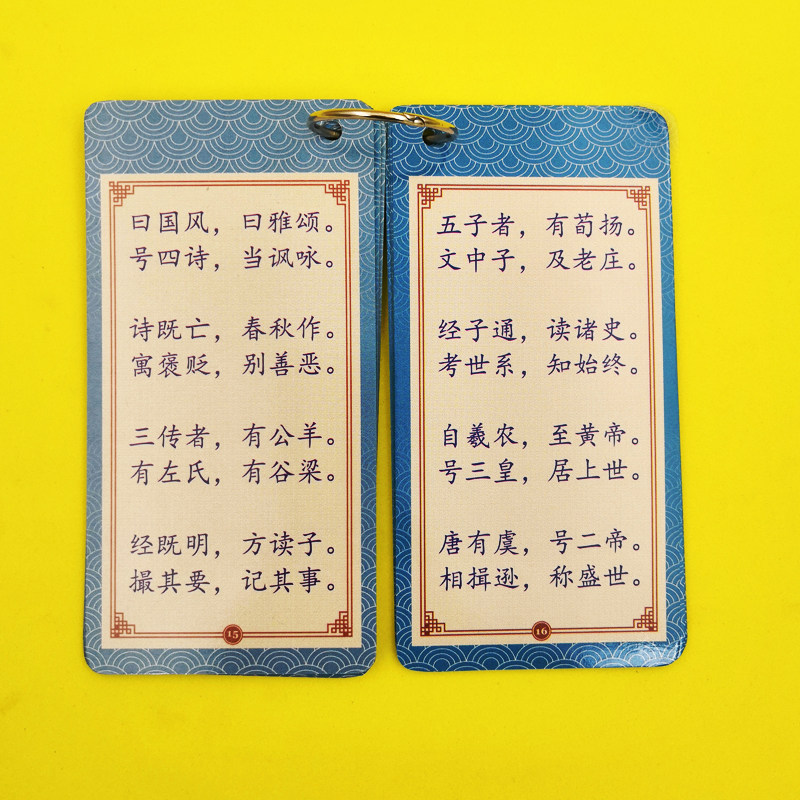 曰国风，曰雅颂。
号四诗，当讽咏。
诗既亡，春秋作。
寓褒贬，别善恶。
三传者，有公羊。
有左氏，有谷梁。
经既明，方读子。
撮其要，记其事。
15
五子者，有荀扬。
文中子，及老庄。
经子通，读诸史。
考世系，知始终。
自羲农，至黄帝。
号三皇，居上世。
唐有虞，号二帝。
相揖逊，称盛世。
16